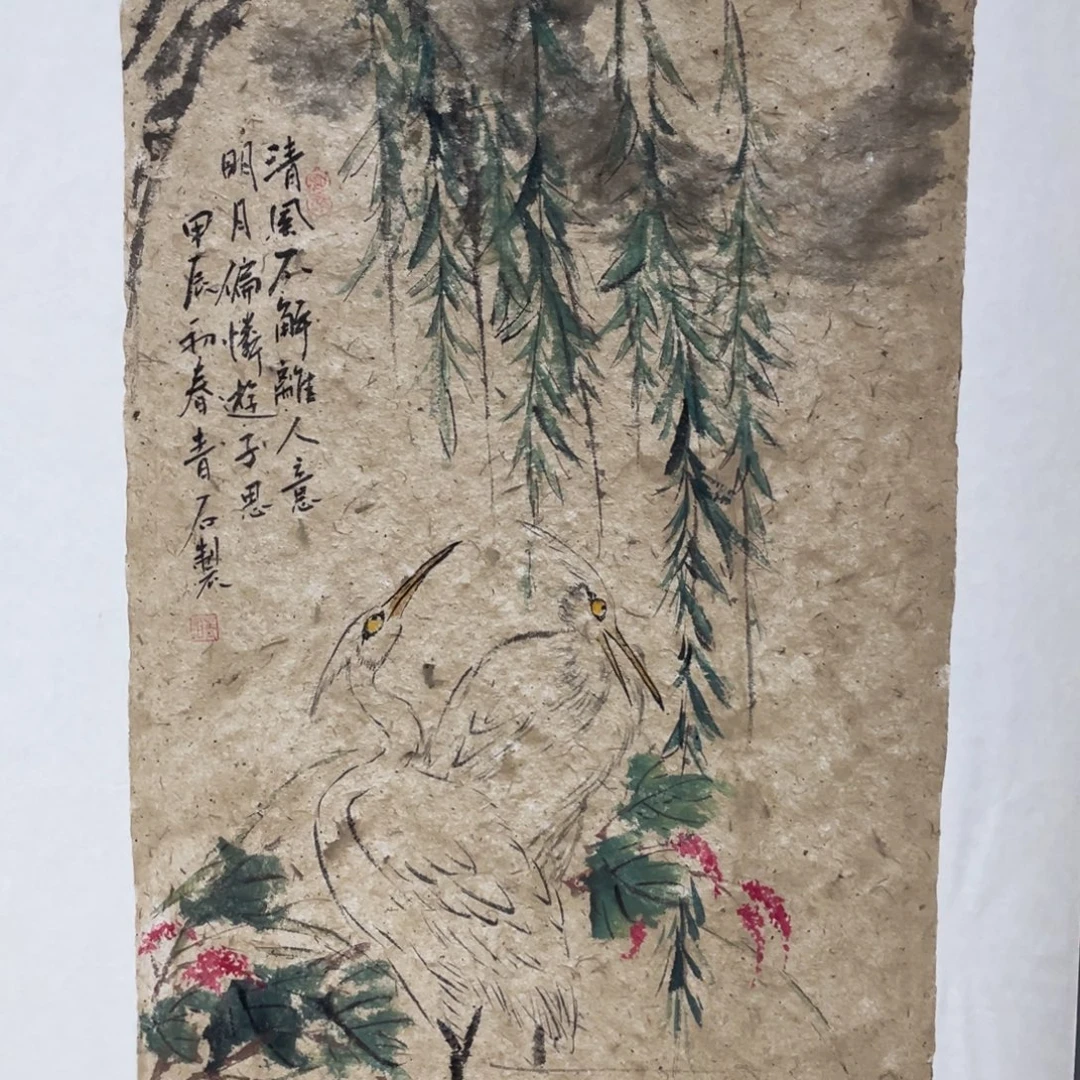 清風不解離人意
明月偏憐遊子思
甲辰初春青石製